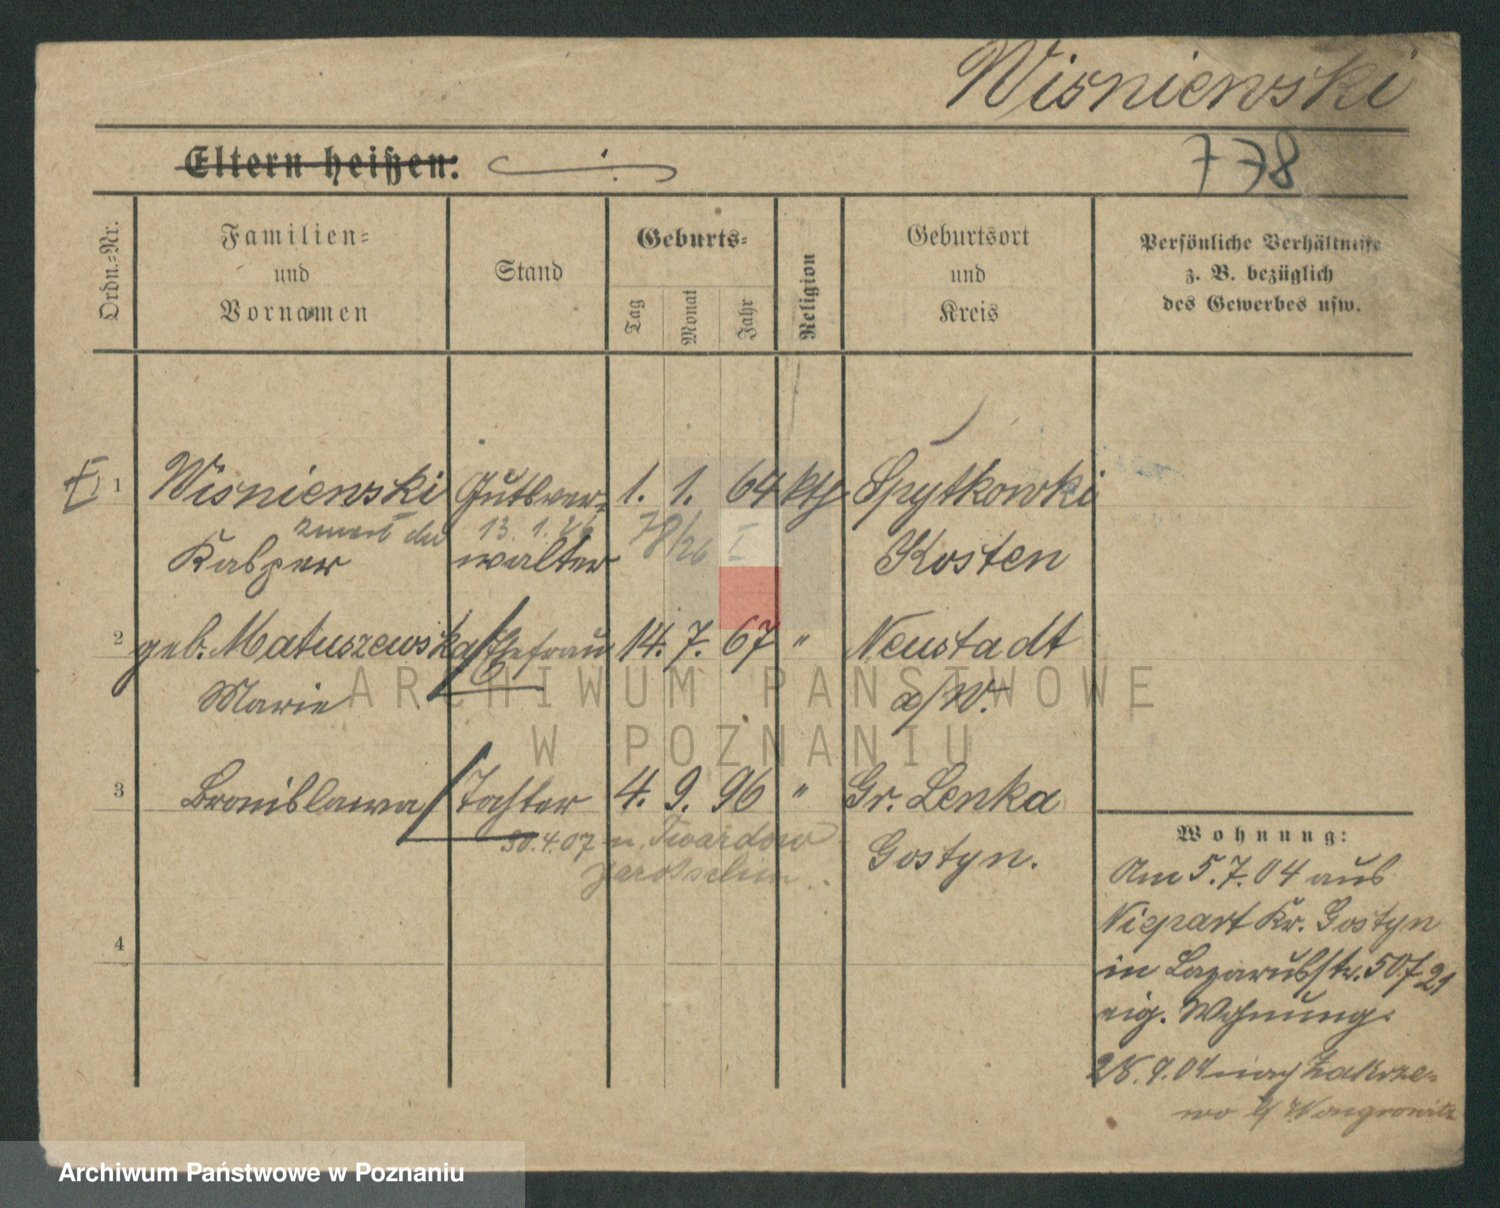 Wisniewski
Eltern heißen:
778
Ordn.-Nr.
Familien-
und
Vornamen
Stand
Geburts-
Tag
Monat
Jahr
Religion
Geburtsort
und
Kreis
Persönliche Verhältnisse
z. B. bezüglich
des Gewerbes usw.
1 Wisniewski Gutsver- 1. 1. 64 kth Spytkowki
zmarł dn 13. 1. 26 78/26 I
Kasper walter Kosten
2 geb. Matuszewska Ehefrau 14. 7. 67 " Neustadt
Marie a/W.
3 Bronislawa Tochter 4. 9. 96 " Gr. Lenka
30.4.07 n. Twardow
Jarotschin Gostyn.
4
Wohnung:
Am 5.7.04 aus
Niepart Kr. Gostyn
in Lazarusstr. 50
eig. Wohnung.
28.9.04 nach Zakrze-
wo b/ Wongrowitz
ARCHIWUM PAŃSTWOWE
W POZNANIU
Archiwum Państwowe w Poznaniu